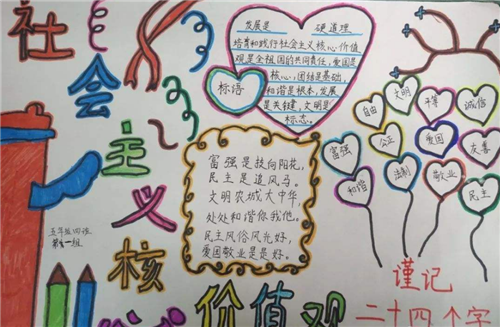 社会主义核心
价值观
发展是 硬道理
培育和践行社会主义核心价值
观是全祖国的共同责任,爱国是
核心,团结是基础,
和谐是根本,发展
是关键,文明是
标态。
标语
富强是扶向阳花,
民主是追风马。
文明农城大中华,
处处和谐你我他。
民主风俗风光好,
爱国敬业是是好。
五年级四班
第一组
自由
文明
平等
诚信
富强
公正
爱国
友善
和谐
法制
敬业
民主
谨记
二十四个字